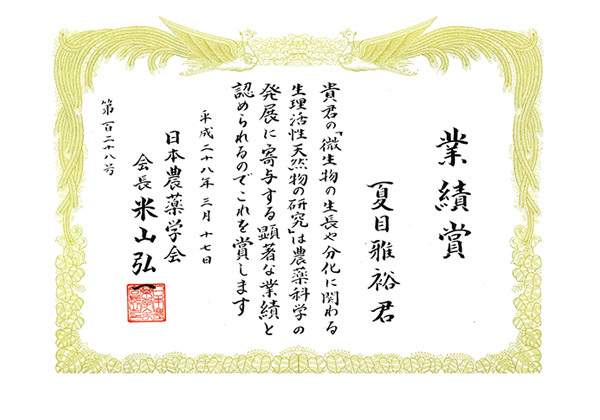 業績賞
夏目雅裕君
貴君の「微生物の生長や分化に関わる
生理活性天然物の研究」は農薬科学の
発展に寄与する顕著な業績と
認められるのでこれを賞します
平成二十八年三月十七日
日本農薬学会
会長 米山弘一
第百二十八号